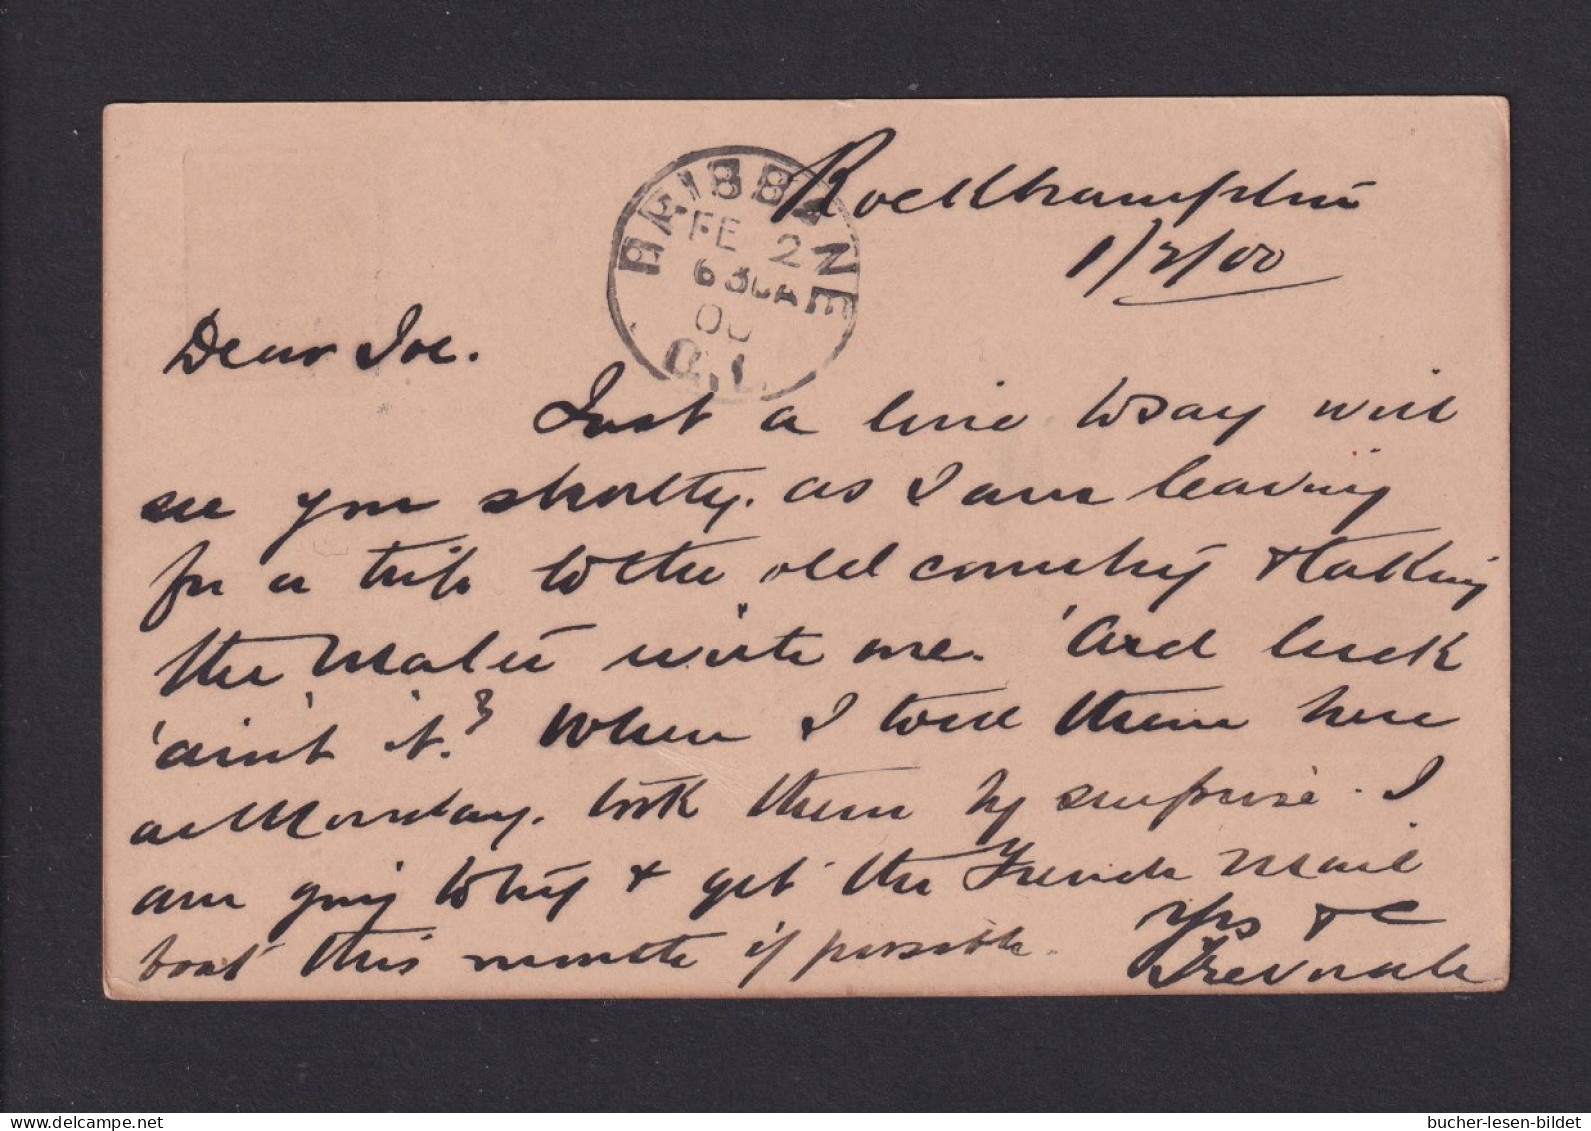 BRISBANE
FE 2
6 30 A
00
Q.L
Rockhampton
1/2/00
Dear Joe.
Just a line to say will
see you shortly. as I am leaving
for a trip to the old country & taking
the with me. 'Ard luck
'ain't it? When I told them here
on Monday. took them by surprise. I
am going to try & get the French Mail
boat this month if possible.
Yrs &c
bucher-lesen-bildet